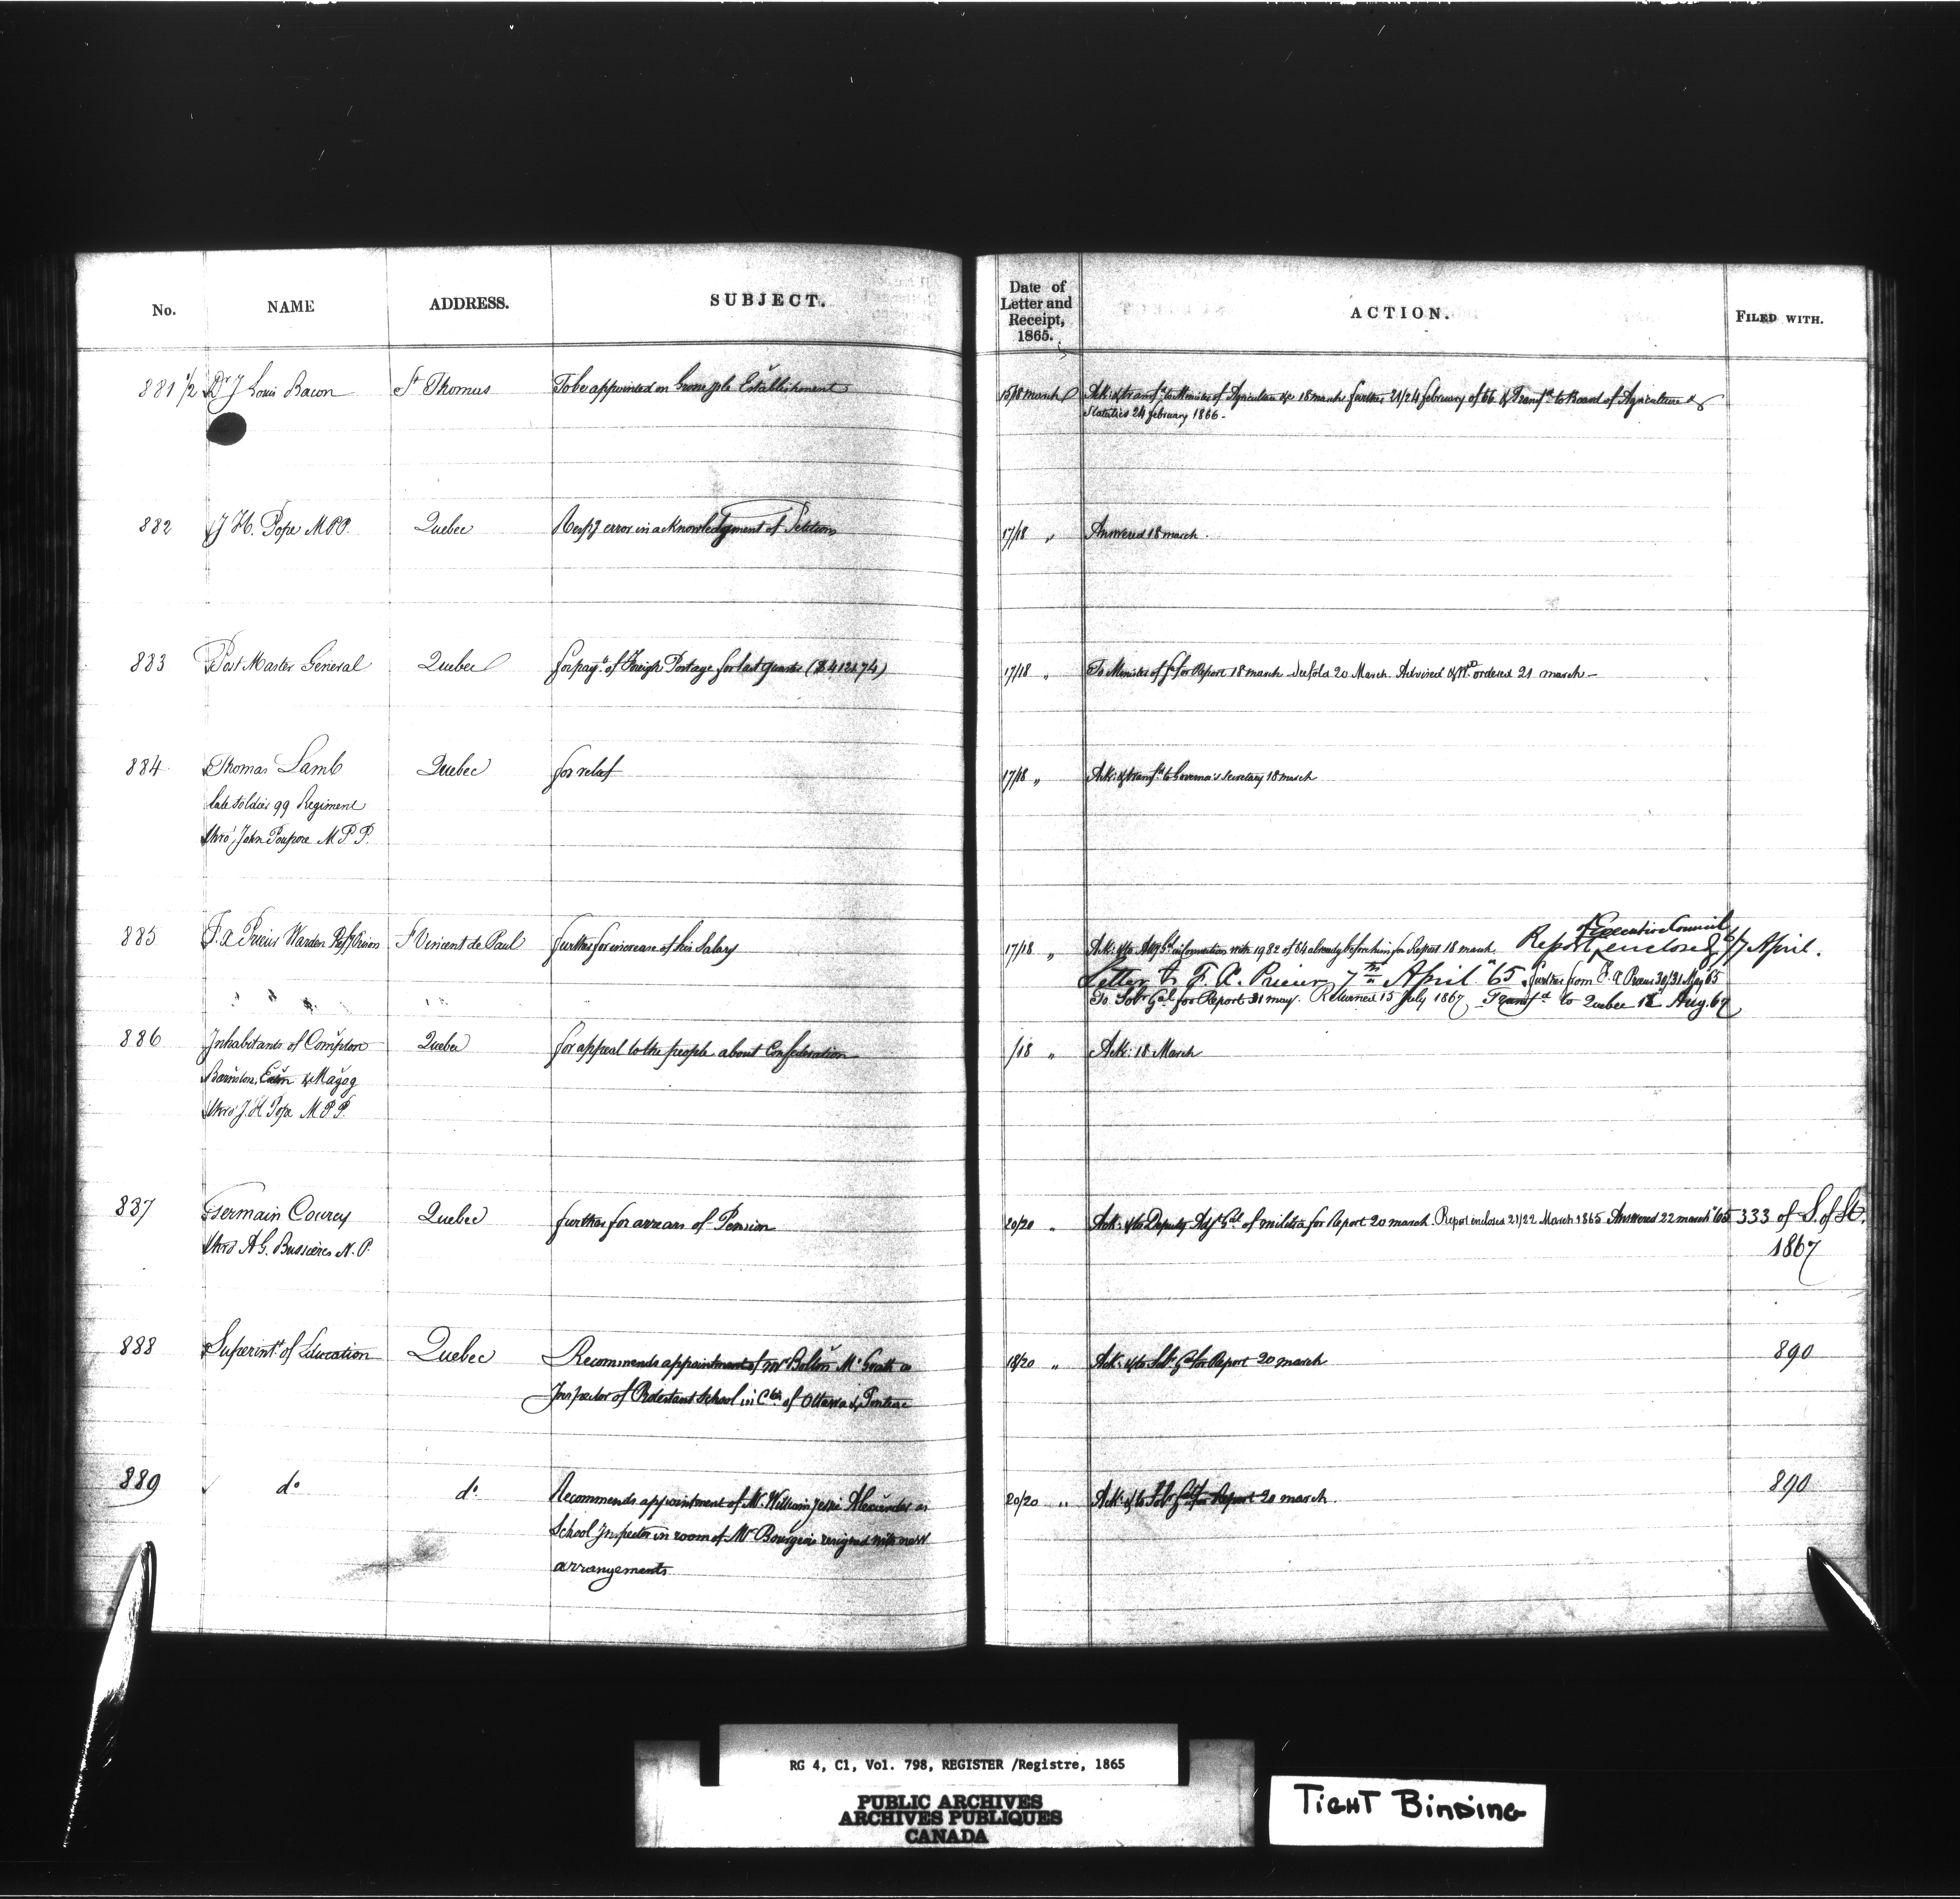 No. NAME ADDRESS. SUBJECT. Date of Letter and Receipt, 1865. ACTION. FILED WITH.
881 1/2 Dr J Louis Bacon St Thomas To be appointed on Establishment 15/18 march Ack: & transfd to Minister of Agriculture &c 18 march further 21/24 february of 66 & Transfd to Board of Agriculture &
Statistics 24 february 1866 -
882 J H. Pope M.P.P. Quebec Respg error in acknowledgment of Petition 17/18 " Answered 18 march.
883 Post Master General Quebec for payt of Postage for last quarter ($4124.74) 17/18 " To Minister of for Report 18 march 20 March. Advised & Wt ordered 21 march -
884 Thomas Lamb Quebec for relief 17/18 " Ack: & transfd to Governor's Secretary 18 march
late soldier 99 Regiment
thro' John Poupore M P P.
885 F. X Prieur Warden Refy Prison St Vincent de Paul further for increase of his Salary 17/18 " Ack: & to information with 1982 of 64 already before him for Report 18 march. Report of Executive Council enclosed 6/7 April.
Letter to F. X. Prieur 7th April "65 further from F. X Prieur 30/31 May 65
To Solr Gal for Report 31 may. Returned 15 July 1867 Transfd to Quebec 12 Aug. 67
886 Inhabitants of Compton Quebec for appeal to the people about Confederation /18 " Ack: 18 March
Barnston, Eaton & Magog
thro' J. H Pope M P P.
887 Germain Courcy Quebec further for arrears of Pension 20/20 " Ack: & to Deputy Adjt Gal of militia for Report 20 march. Report enclosed 21/22 March 1865 Answered 22 march '65 333 of S. of St.
1867
thro A G. Bussières N. P.
888 Superintt of Education Quebec Recommends appointment of Mr Bolton McGrath as 18/20 " Ack: & to Solr Gal for Report 20 march 890
Inspector of Protestant School in Cties of Ottawa & Pontiac
889 do do Recommends appointment of Mr William Jesse Alexander as 20/20 " Ack: & to Solr Gal for Report 20 march. 890
School Inspector in room of Mr Bourgeois resigned with new
arrangements
RG 4, C1, Vol. 798, REGISTER /Registre, 1865
PUBLIC ARCHIVES
ARCHIVES PUBLIQUES
CANADA
TIGHT BINDING